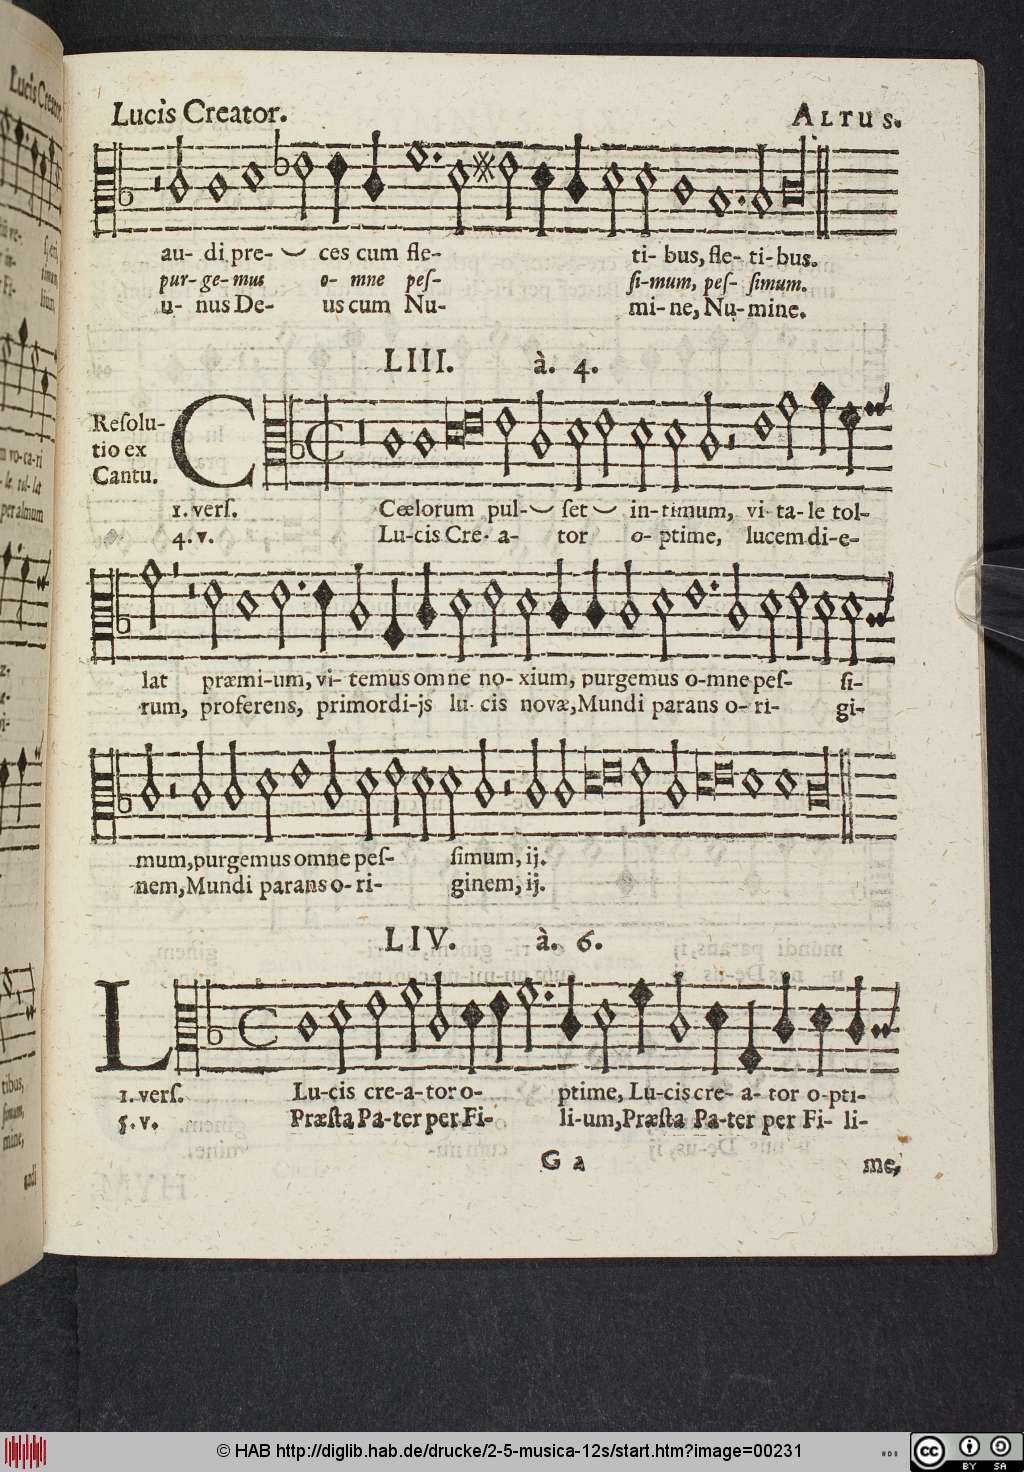 Lucis Creator.
ALTUS.
au- di pre- ces cum fle- ti- bus, fle- ti- bus.
pur- ge- mus o- mne peſ- ſi- mum, peſ- ſimum.
u- nus De- us cum Nu- mi- ne, Nu- mine.
LIII. à. 4.
Reſolu-
tio ex
Cantu.
C
1. verſ. Cœlorum pul- ſet in- timum, vi- ta- le tol-
4. v. Lu-cis Cre- a- tor o- ptime, lucem di-e-
lat præmi-um, vi- temus omne no- xium, purgemus o-mne peſ- ſi-
rum, proferens, primordi-js lu- cis novæ, Mundi parans o- ri- gi-
mum, purgemus omne peſ- ſimum, ij.
nem, Mundi parans o- ri- ginem, ij.
LIV. à. 6.
L
1. verſ. Lu-cis cre-a- tor o- ptime, Lu-cis cre- a- tor o-pti-
5. v. Præſta Pa-ter per Fi- li-um, Præſta Pa-ter per Fi- li-
G 2 me,
Lucis Creator.
vo-ca-ri
tol- lat
per almum
tibus,
ſimum,
mine,
© HAB http://diglib.hab.de/drucke/2-5-musica-12s/start.htm?image=00231
cc BY SA